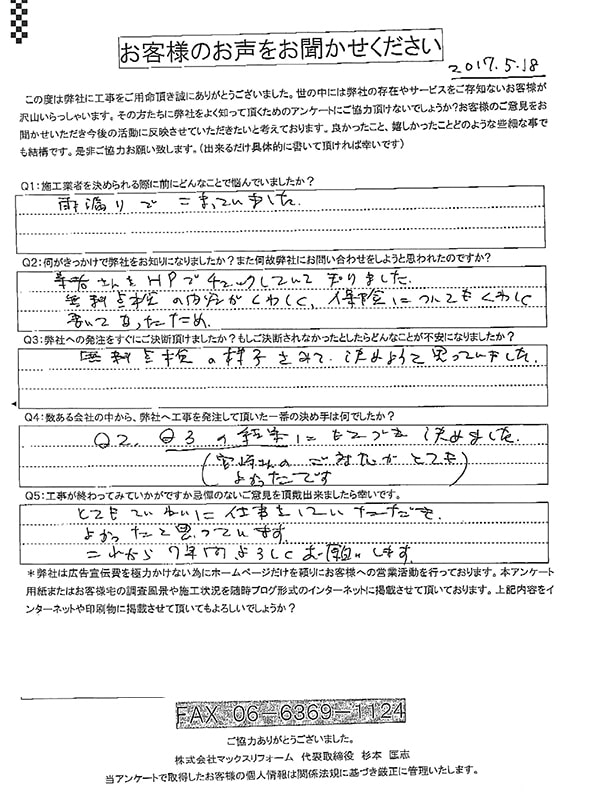 お客様のお声をお聞かせください
2017.5.18
この度は弊社に工事をご用命頂き誠にありがとうございました。世の中には弊社の存在やサービスをご存知ないお客様が
沢山いらっしゃいます。その方たちに弊社をよく知って頂くためのアンケートにご協力頂けないでしょうか?お客様のご意見をお
聞かせいただき今後の活動に反映させていただきたいと考えております。良かったこと、嬉しかったことどのような些細な事で
も結構です。是非ご協力お願い致します。(出来るだけ具体的に書いて頂ければ幸いです)
Q1:施工業者を決められる際に前にどんなことで悩んでいましたか?
雨漏りでこまっていました。
Q2:何がきっかけで弊社をお知りになりましたか?また何故弊社にお問い合わせをしようと思われたのですか?
業者さんをHPでチェックしていて知りました。
無料点検の内容がくわしく、保険についてもくわしく
書いてあったため。
Q3:弊社への発注をすぐにご決断頂けましたか?もしご決断されなかったとしたらどんなことが不安になりましたか?
無料点検の様子をみて、決めようと思っていました。
Q4:数ある会社の中から、弊社へ工事を発注して頂いた一番の決め手は何でしたか?
Q2、Q3の結果にもとづき決めました。
(宮崎さんのご対応がとても
よかったです)
Q5:工事が終わってみていかがですか忌憚のないご意見を頂戴出来ましたら幸いです。
とてもていねいに仕事をしていただき、
よかったと思っています。
これから7年間よろしくお願いします。
*弊社は広告宣伝費を極力かけない為にホームページだけを頼りにお客様への営業活動を行っております。本アンケート
用紙またはお客様宅の調査風景や施工状況を随時ブログ形式のインターネットに掲載させて頂いております。上記内容をイ
ンターネットや印刷物に掲載させて頂いてもよろしいでしょうか?
FAX 06-6369-1124
ご協力ありがとうございました。
株式会社マックスリフォーム 代表取締役 杉本 匡志
当アンケートで取得したお客様の個人情報は関係法規に基づき厳正に管理いたします。